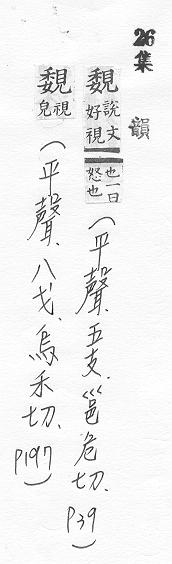 26 集韻
覣 說文好視也一曰怒也 (平聲.五支.邕危切.P39)
覣 視皃 (平聲.八戈.烏禾切.P197)